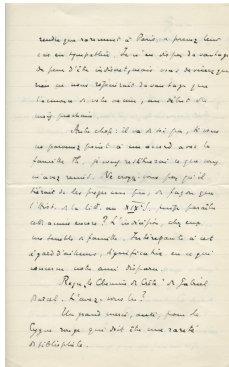 rendre que rarement à Paris, a prenez leur
cas en sympathie. Je n'en dis pas davantage
de peur d'être indiscret, mais vous devinez que
rien ne nous réjouirait davantage que
l'annonce de votre venue, au début de
mai prochain.
Autre chose: il va de soi que, si vous
ne parvenez point à un accord avec la
famille Th., je vous restituerai ce que vous
m'avez remis. Ne croyez-vous pas qu'il
serait de les presser un peu, de façon que
l'Hist. de la litt. au XIXe s. puisse paraître
cette année encore? L'indécision, chez eux,
me semble de famille. Intéressante à cet
égard d'ailleurs, significative en ce qui
concerne notre ami disparu.
Reçu, le Chemin de Crète de Gabriel
L'avez-vous lu?
Un grand merci, aussi, pour le
Cygne rouge, qui doit être une rareté
de bibliophile.